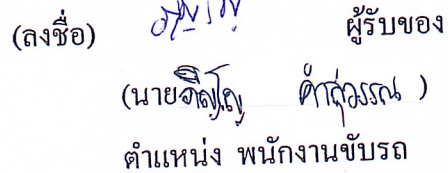 (ลงชื่อ) ผู้รับของ
(นาย คำสุวรรณ )
ตำแหน่ง พนักงานขับรถ